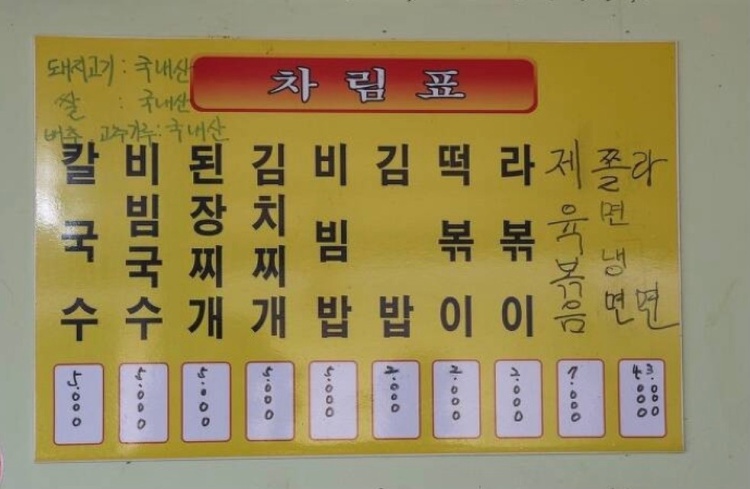 돼지고기 : 국내산
쌀 : 국내산
배추 고추가루 : 국내산
차림표
칼국수
비빔국수
된장찌개
김치찌개
비빔밥
김밥
떡볶이
라볶이
제육볶음
쫄면
냉면
라면
5.000
5.000
5.000
5.000
5.000
2.000
2.000
7.000
4.000
3.000